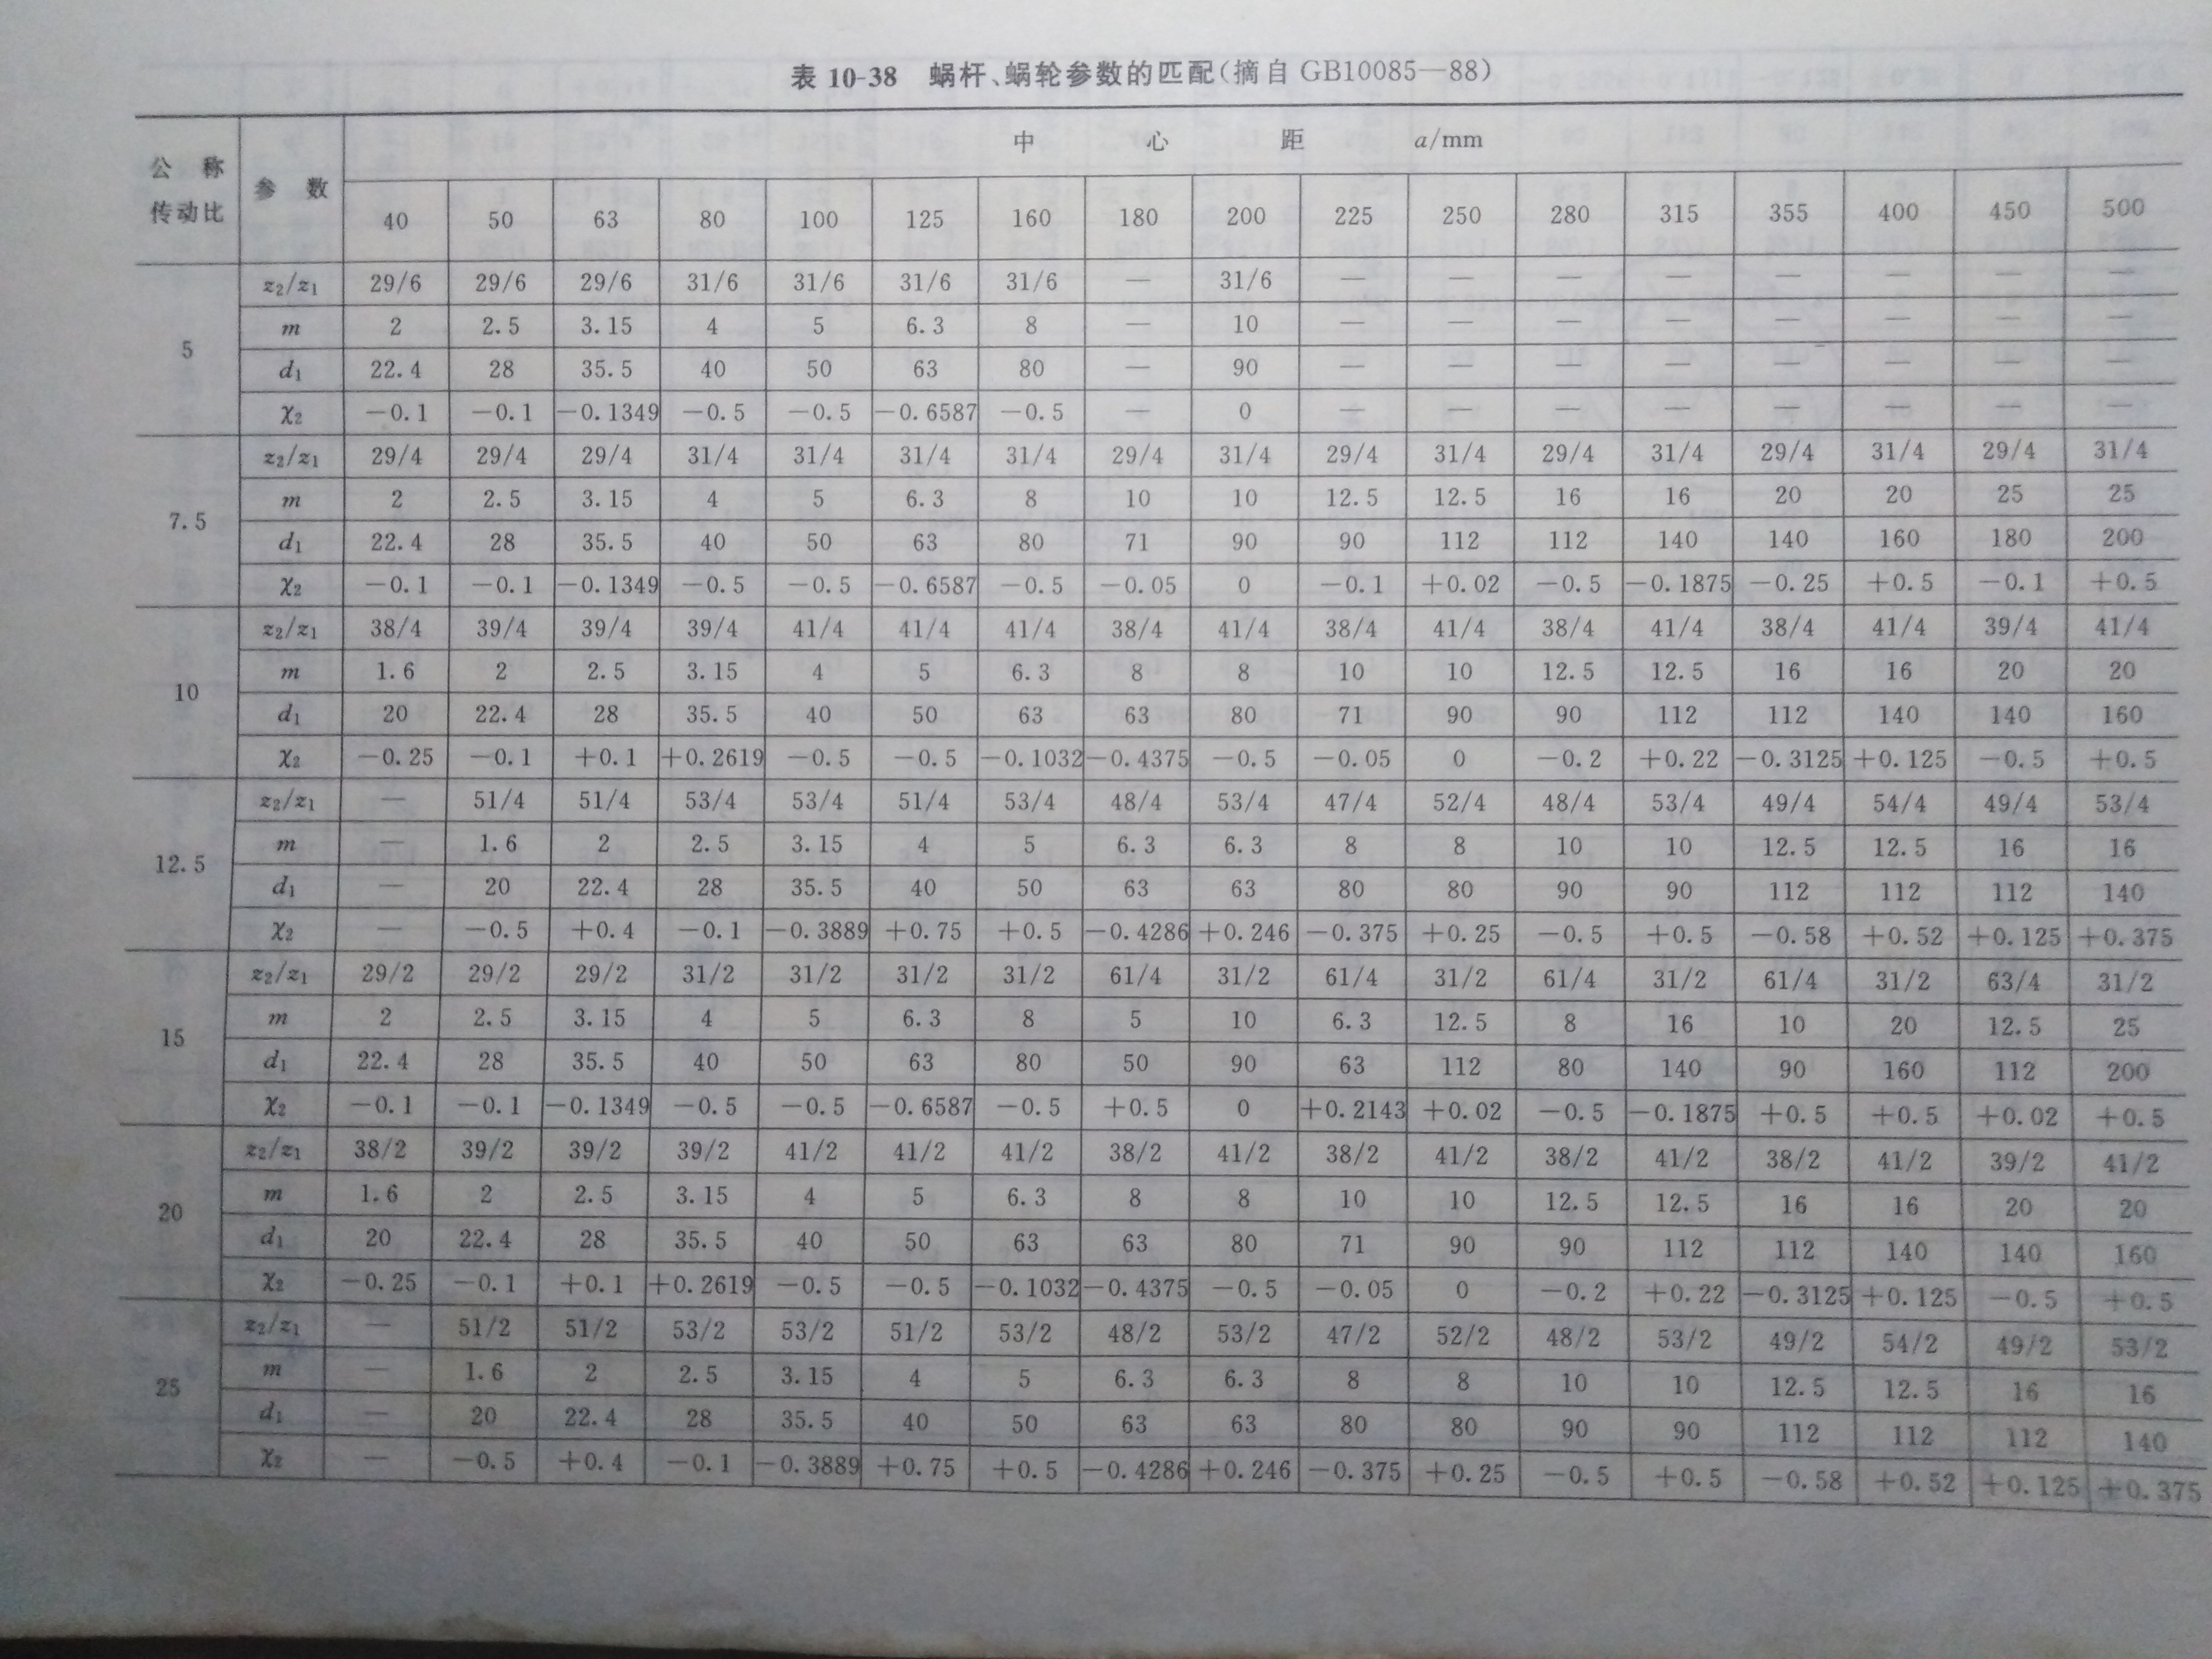 表 10-38 蜗杆、蜗轮参数的匹配(摘自 GB10085—88)
公称传动比 参数 中心距 a/mm
40 50 63 80 100 125 160 180 200 225 250 280 315 355 400 450 500
5
z₂/z₁ 29/6 29/6 29/6 31/6 31/6 31/6 31/6 — 31/6 — — — — — — — —
m 2 2.5 3.15 4 5 6.3 8 — 10 — — — — — — — —
d₁ 22.4 28 35.5 40 50 63 80 — 90 — — — — — — — —
χ₂ −0.1 −0.1 −0.1349 −0.5 −0.5 −0.6587 −0.5 — 0 — — — — — — — —
7.5
z₂/z₁ 29/4 29/4 29/4 31/4 31/4 31/4 31/4 29/4 31/4 29/4 31/4 29/4 31/4 29/4 31/4 29/4 31/4
m 2 2.5 3.15 4 5 6.3 8 10 10 12.5 12.5 16 16 20 20 25 25
d₁ 22.4 28 35.5 40 50 63 80 71 90 90 112 112 140 140 160 180 200
χ₂ −0.1 −0.1 −0.1349 −0.5 −0.5 −0.6587 −0.5 −0.05 0 −0.1 +0.02 −0.5 −0.1875 −0.25 +0.5 −0.1 +0.5
10
z₂/z₁ 38/4 39/4 39/4 39/4 41/4 41/4 41/4 38/4 41/4 38/4 41/4 38/4 41/4 38/4 41/4 39/4 41/4
m 1.6 2 2.5 3.15 4 5 6.3 8 8 10 10 12.5 12.5 16 16 20 20
d₁ 20 22.4 28 35.5 40 50 63 63 80 71 90 90 112 112 140 140 160
χ₂ −0.25 −0.1 +0.1 +0.2619 −0.5 −0.5 −0.1032 −0.4375 −0.5 −0.05 0 −0.2 +0.22 −0.3125 +0.125 −0.5 +0.5
12.5
z₂/z₁ — 51/4 51/4 53/4 53/4 51/4 53/4 48/4 53/4 47/4 52/4 48/4 53/4 49/4 54/4 49/4 53/4
m — 1.6 2 2.5 3.15 4 5 6.3 6.3 8 8 10 10 12.5 12.5 16 16
d₁ — 20 22.4 28 35.5 40 50 63 63 80 80 90 90 112 112 112 140
χ₂ — −0.5 +0.4 −0.1 −0.3889 +0.75 +0.5 −0.4286 +0.246 −0.375 +0.25 −0.5 +0.5 −0.58 +0.52 +0.125 +0.375
15
z₂/z₁ 29/2 29/2 29/2 31/2 31/2 31/2 31/2 61/4 31/2 61/4 31/2 61/4 31/2 61/4 31/2 63/4 31/2
m 2 2.5 3.15 4 5 6.3 8 5 10 6.3 12.5 8 16 10 20 12.5 25
d₁ 22.4 28 35.5 40 50 63 80 50 90 63 112 80 140 90 160 112 200
χ₂ −0.1 −0.1 −0.1349 −0.5 −0.5 −0.6587 −0.5 +0.5 0 +0.2143 +0.02 −0.5 −0.1875 +0.5 +0.5 +0.02 +0.5
20
z₂/z₁ 38/2 39/2 39/2 39/2 41/2 41/2 41/2 38/2 41/2 38/2 41/2 38/2 41/2 38/2 41/2 39/2 41/2
m 1.6 2 2.5 3.15 4 5 6.3 8 8 10 10 12.5 12.5 16 16 20 20
d₁ 20 22.4 28 35.5 40 50 63 63 80 71 90 90 112 112 140 140 160
χ₂ −0.25 −0.1 +0.1 +0.2619 −0.5 −0.5 −0.1032 −0.4375 −0.5 −0.05 0 −0.2 +0.22 −0.3125 +0.125 −0.5 +0.5
25
z₂/z₁ — 51/2 51/2 53/2 53/2 51/2 53/2 48/2 53/2 47/2 52/2 48/2 53/2 49/2 54/2 49/2 53/2
m — 1.6 2 2.5 3.15 4 5 6.3 6.3 8 8 10 10 12.5 12.5 16 16
d₁ — 20 22.4 28 35.5 40 50 63 63 80 80 90 90 112 112 112 140
χ₂ — −0.5 +0.4 −0.1 −0.3889 +0.75 +0.5 −0.4286 +0.246 −0.375 +0.25 −0.5 +0.5 −0.58 +0.52 +0.125 +0.375